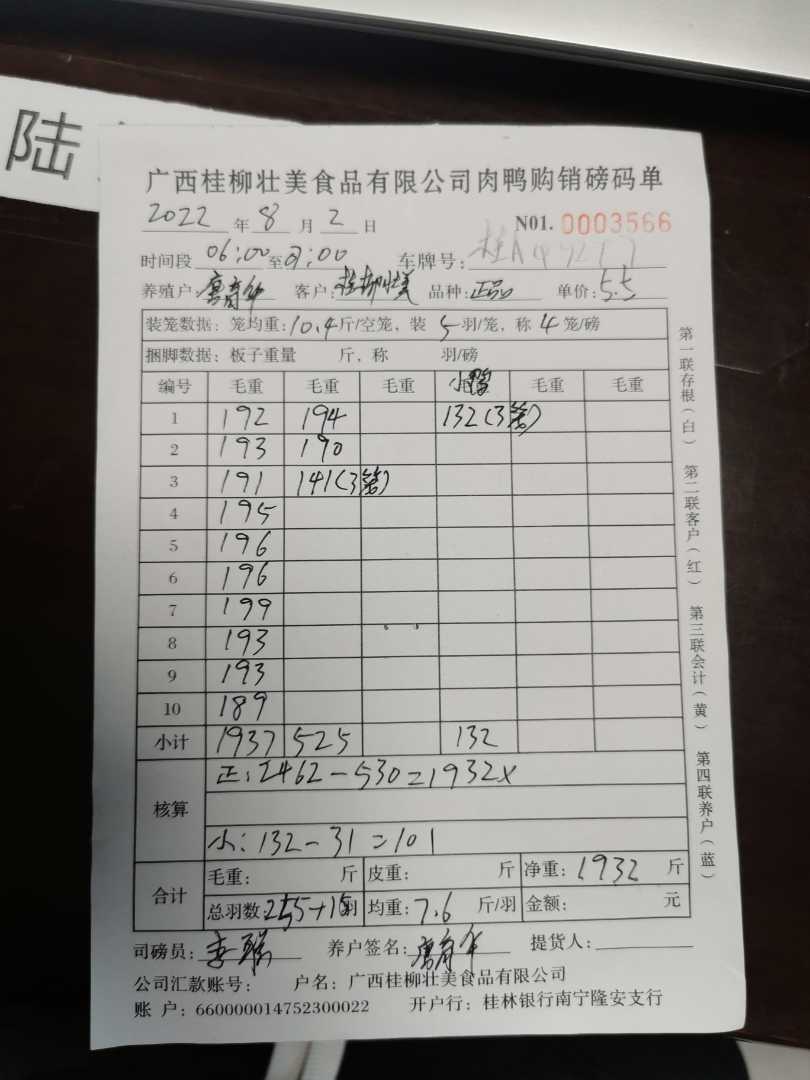 陆
广西桂柳壮美食品有限公司肉鸭购销磅码单
2022 年 8 月 2 日 N01. 0003566
时间段 06:00 至 9:00 车牌号: 桂A
养殖户: 客户: 桂柳壮美 品种: 正品 单价: 5.5
装笼数据: 笼均重: 10.4 斤/空笼, 装 5 羽/笼, 称 4 笼/磅
捆脚数据: 板子重量 斤, 称 羽/磅
编号 毛重 毛重 毛重 小鸭 毛重 毛重
1 192 194 132(3笼)
2 193 190
3 191 141(3笼)
4 195
5 196
6 196
7 199
8 193
9 193
10 189
小计 1937 525 132
核算 正: 2462-530=1932x
小: 132-31=101
合计 毛重: 斤 皮重: 斤 净重: 1932 斤
总羽数: 255+15羽 均重: 7.6 斤/羽 金额: 元
司磅员: 养户签名: 提货人:
公司汇款账号: 户名: 广西桂柳壮美食品有限公司
账 户: 660000014752300022 开户行: 桂林银行南宁隆安支行
第一联存根(白) 第二联客户(红) 第三联会计(黄) 第四联养户(蓝)